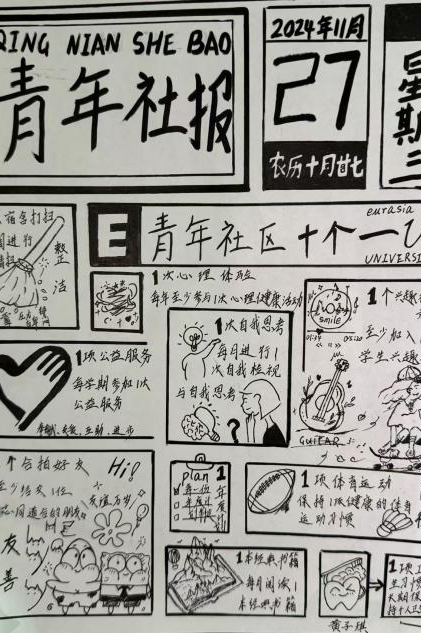 QING NIAN SHE BAO
青年社报
2024年11月
27
农历十月廿七
星期三
宿舍打扫
整洁
E
青年社区十个一
eurasia
UNIVERSI
1次心理体验
每年至少参与1次心理健康活动
1次自我思考
每月进行1
次自我检视
与自我思考
?
smile
1个兴趣
至少加入
学生兴趣
GUITAR
1项公益服务
每学期参加1次
公益服务
个合拍好友
至少结交1位
志同道合的朋友
Hi!
友谊万岁
友善
plan
1
年度计
1项体育运动
保持1项健康的体育
运动习惯
1本经典书籍
每月阅读1
本经典书籍
1项
黄子琪